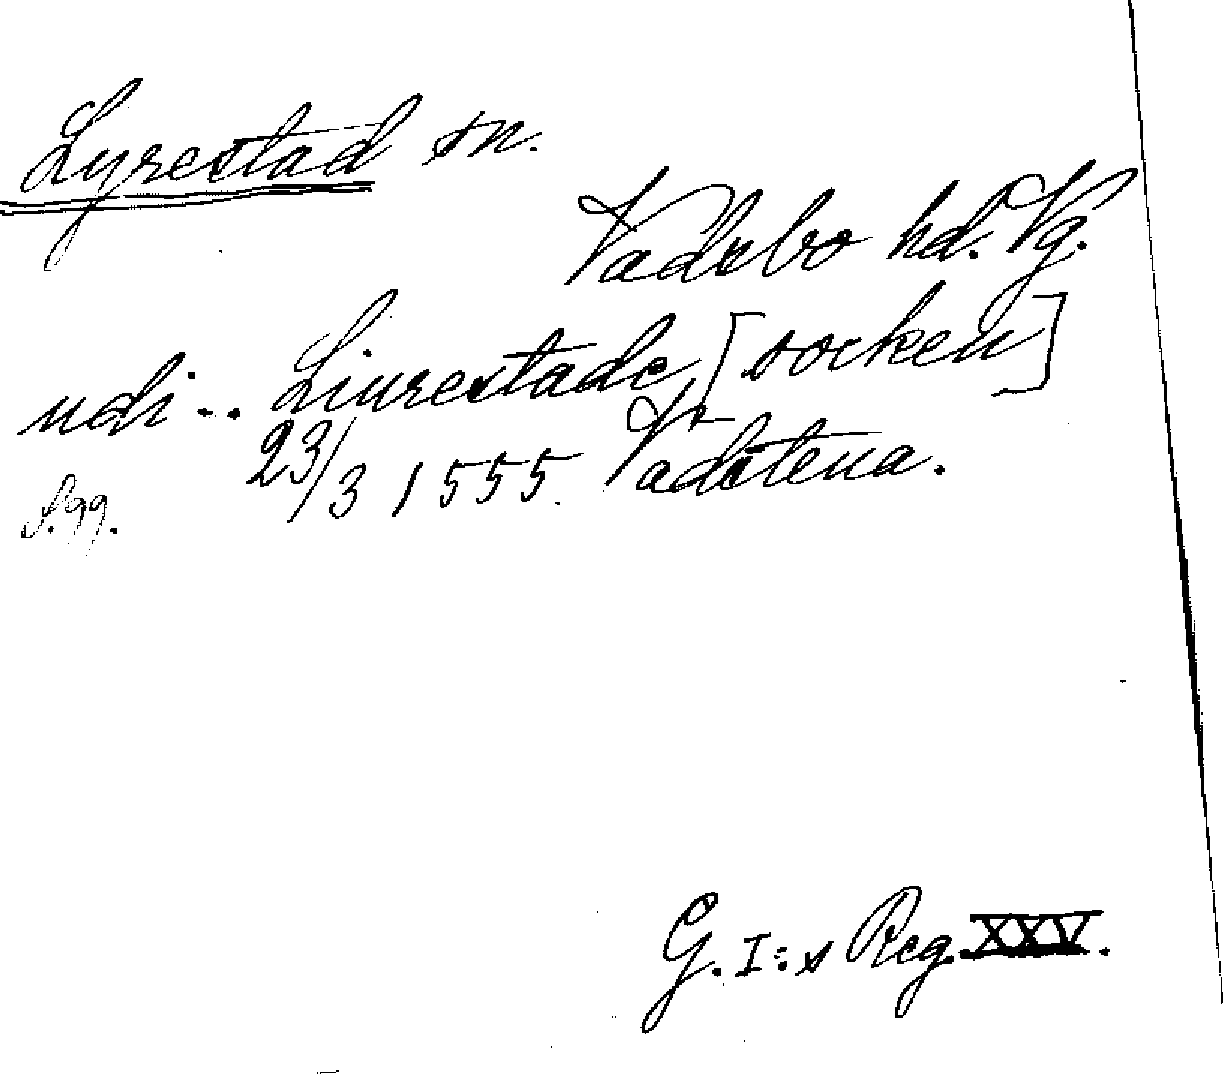 Lyrestad sn.
Vadsbo hd. Vg.
udi .. Liurestade, [socken]
23/3 1555. Vadstena.
S. 99.
G. I:s Reg. XXV.